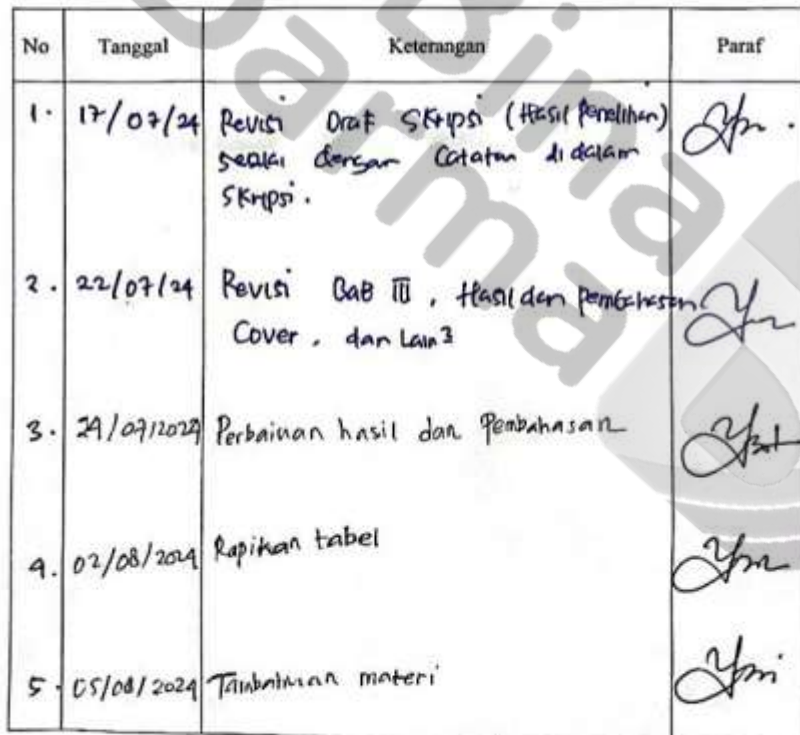 Bina
Darma
No Tanggal Keterangan Paraf
1. 17/07/24 Revisi Draf Skripsi (Hasil Penelitian)
sesuai dengan Catatan didalam
Skripsi.
2. 22/07/24 Revisi BaB III, Hasil dan Pembahasan
Cover, dan Lain2
3. 29/07/2024 Perbaikan hasil dan Pembahasan
4. 02/08/2024 Rapikan tabel
5. 05/08/2024 Tambahkan materi